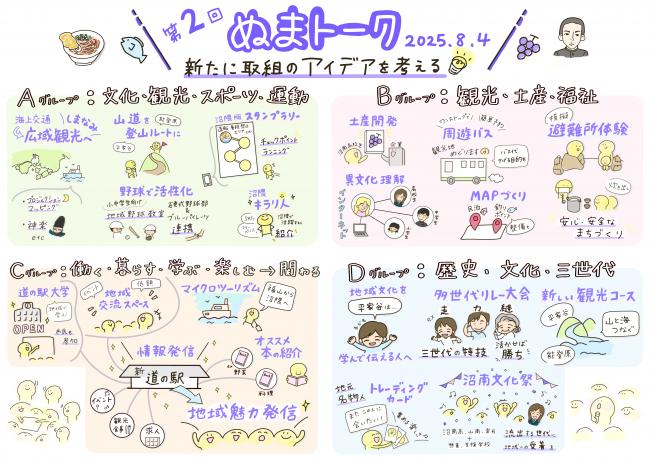 第2回
ぬまトーク
2025.8.4
新たに取組のアイデアを考える
Aグループ：文化・観光・スポーツ・運動
海上交通
しまなみ
広域観光へ
プロジェクションマッピング
神楽
etc
山道を
登山ルートに
能登原
平家谷
沼隈版
スタンプラリー
チェックポイント
ランニング
野球で活性化
小中学生向け
地域野球教室
連携
沼隈
キラリ人
紹介
Bグループ：観光・土産・福祉
土産開発
企業
周遊バス
観光地
めぐります
バスで
やぐら目的地
模擬
避難所体験
異文化理解
インターネット
高校生
中学生
小学生
MAPづくり
整備も
火を出す
安心・安全な
まちづくり
Cグループ：働く・暮らす・学ぶ・楽しむ→関わる
道の駅大学
OPEN
地域
交流スペース
マイクロツーリズム
福山から
沼隈へ
情報発信
新 道の駅
オススメ
本の紹介
野菜
料理
イベント
観光
求人
地域魅力発信
Dグループ：歴史、文化、三世代
地域文化を
平家谷は…
学んで伝える人へ
多世代リレー大会
走 力 縫
三世代の特技
活かせば
勝ち
新しい観光コース
平家谷
山と海
つなぐ
能登原
地元
名物人
トレーディング
カード
またこの人に
会いたい！
沼南文化祭
流出する世代に
地域への愛着を